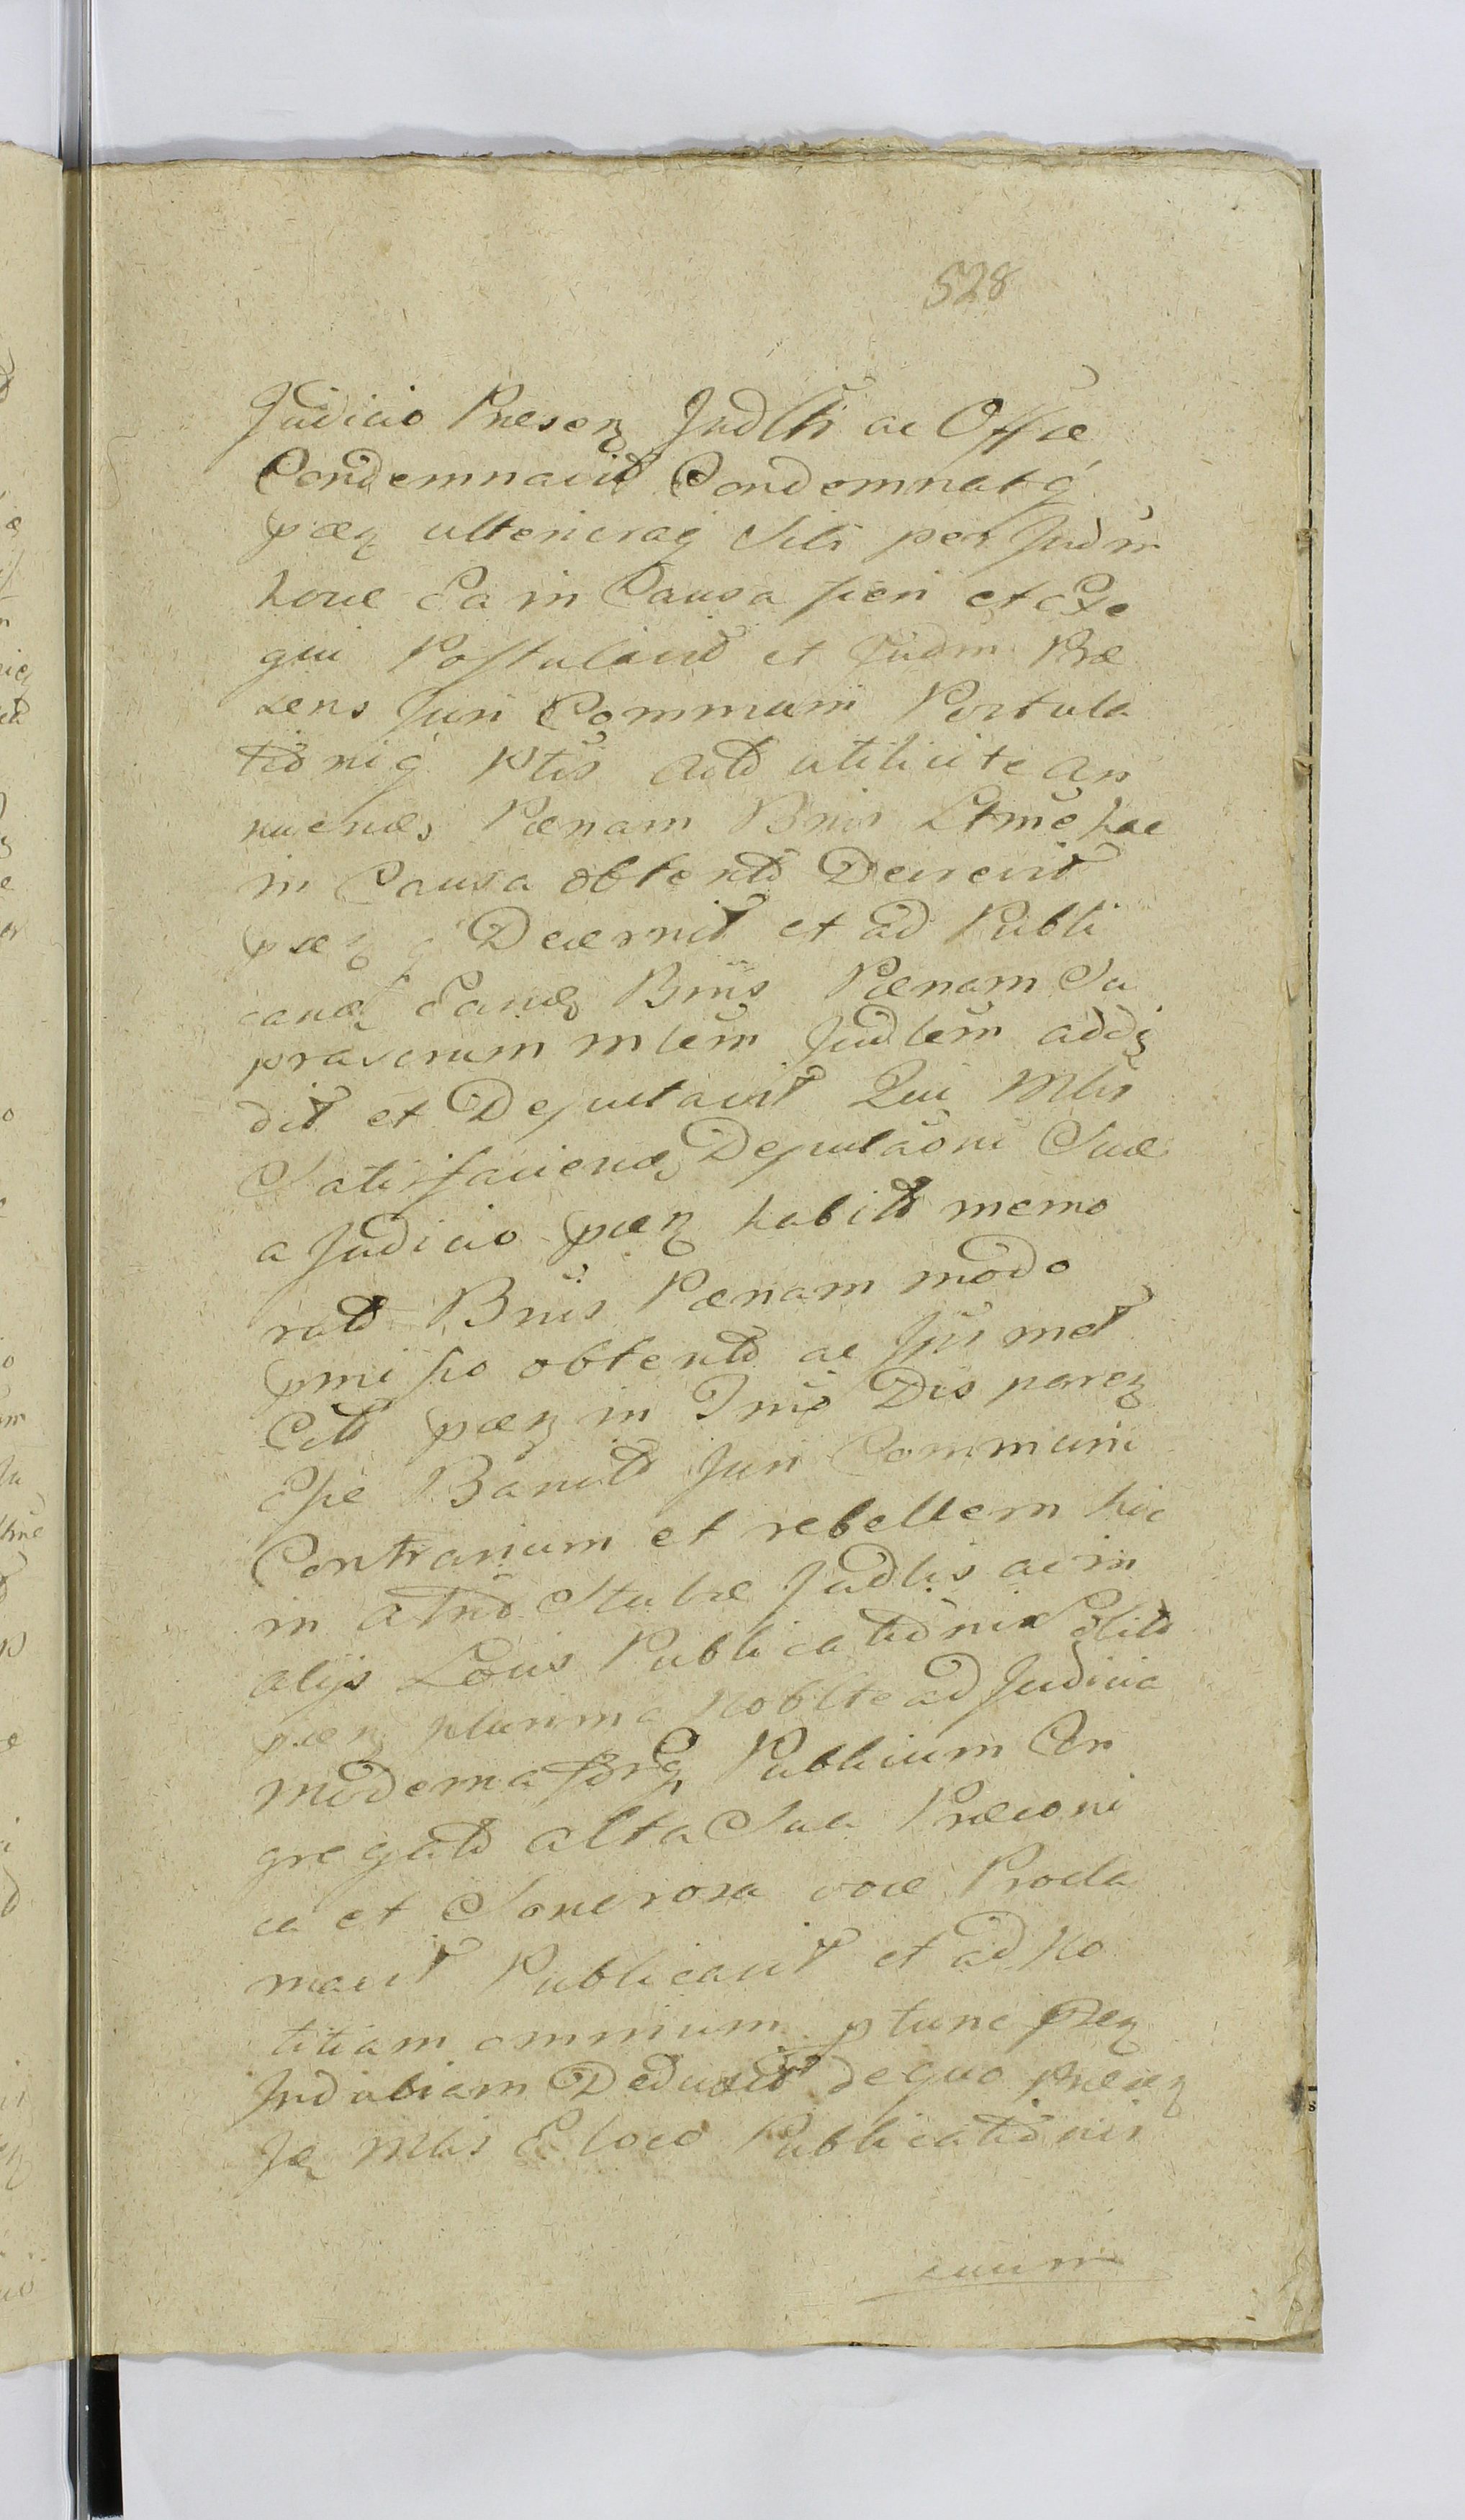 528
Judicio Presen Judlh ac Offce
Condemnavit Condemnatq
pręn ulterioraq Sibi per Judm
hocce Ea in Causa fieri et Exe
qui Postulavit et Judm Præ
sens Juri Communi Postula
tioniq Ptis Actō utilicite an
nuends Pænam Bnis Ltmē hac
in Causa obtentō Decrevit
pręnq Decernit et ad Publi
cand Eand Bnis Pænam Su
prascrum mlēm Judlēm addi
dit et Deputavit Qui Mlis
Satisfaciend Deputaōni Suæ
a Judicio pręn habitō memo
ratō Bnis Pænam modo
pmisso obtentō ac Ipsmet
Cittō pręn in Trmō Dis paren
Esse Banitō Juri Communi
Contrarium et rebellem hic
in atriō Stubæ Judlis ac in
alijs Locis Publicationi Solitō
pręn plurima Noblte ad Judicia
moderna Forq Publicum Con
gregatō alta Sua Præconi
ca et Sonorosa voce Procla
mavit Publicavit et ad No
titiam omnium ptunc pręn
Indubiam Deduxit de quo præen
Je Mlis E loco Publicationis
suum